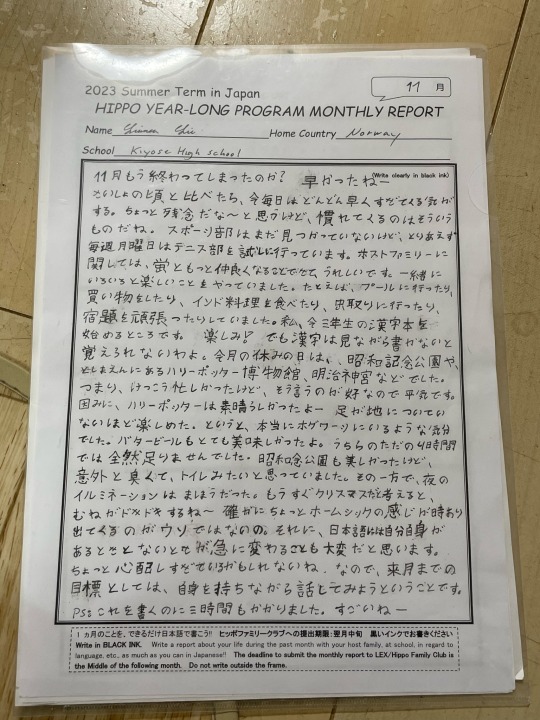 2023 Summer Term in Japan
11 月
HIPPO YEAR-LONG PROGRAM MONTHLY REPORT
Name
Home Country Norway
School Kiyose High school
(Write clearly in blank ink)
11月もう終わってしまったのか? 早かったねー
さいしょの頃と比べたら、今毎日はどんどん早くすぎてくる気が
する。ちょっと残念だな〜と思うけど、慣れてくるのはそういう
ものだね。スポーツ部はまだ見つかっていないけど、とりあえず
毎週月曜日はテニス部を試しに行っています。ホストファミリーに
関しては、蛍ともっと仲良くなることでうれしいです。一緒に
いろいろと楽しいことをやっていました。たとえば、プールに行ったり、
買い物をしたり、インド料理を食べたり、虫取りに行ったり、
宿題を頑張ったりしていました。私、今三年生の漢字本を
始めるところです。楽しみ? でも漢字は見ながら書かないと
覚えられないわよ。今月の休みの日は、、昭和記念公園や、
としまえんにあるハリーポッター博物館、明治神宮などでした。
つまり、けっこう忙しかったけど、そう言うのが好なので平気です。
因みに、ハリーポッターは素晴らしかったよー 足が地についてい
ないほど楽しめた。というと、本当にホグワーツにいるような気分
でした。バタービールもとても美味しかったよ。うちらのただの4時間
では全然足りませんでした。昭和念公園も美しかったけど、
意外と臭くて、トイレみたいと思っていました。その一方で、夜の
イルミネーションはまほうだった。もうすぐクリスマスだと考えると、
むねがドキドキするね〜 確かにちょっとホームシックの感じが時あり
出てくるのがウソではないの。それに、日本語はは自分自身が
あるとととないとで が急に変わることも大変だと思います。
ちょっと心配しすぎているかもしれないね。なので、来月までの
目標としては、自身を持ちながら話してみようということです。
PS: これを書くのに三時間もかかりました。すごいねー
1ヵ月のことを、できるだけ日本語で書こう!! ヒッポファミリークラブへの提出期限:翌月中旬 黒いインクでお書きください
Write in BLACK INK. Write a report about your life during the past month with your host family, at school, in regard to
language, etc., as much as you can in Japanese!! The deadline to submit the monthly report to LEX/Hippo Family Club is
the Middle of the following month. Do not write outside the frame.